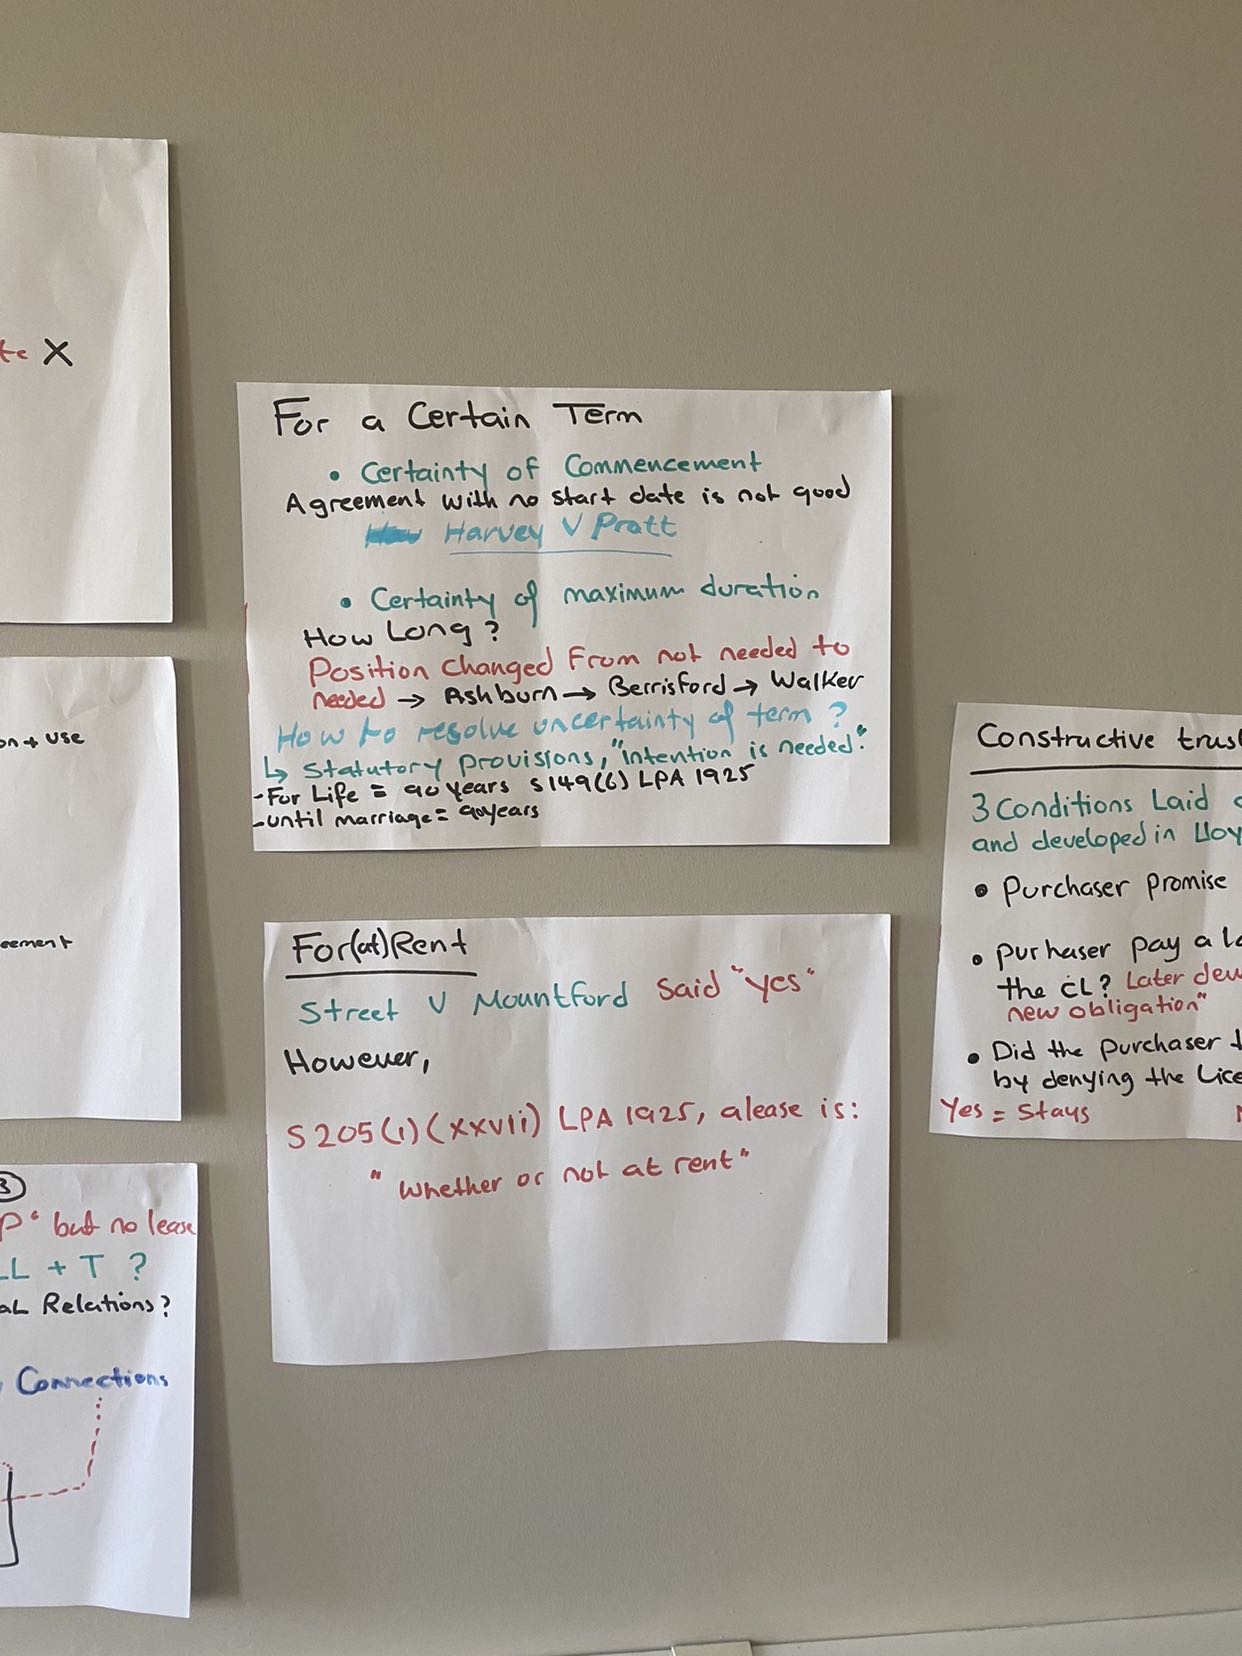 X
For a Certain Term
• Certainty of Commencement
Agreement with no start date is not good
Harvey V Pratt
• Certainty of maximum duration
How Long?
Position Changed From not needed to
needed → Ashburn → Berrisford → Walker
How to resolve uncertainty of term?
↳ Statutory provisions, "intention is needed."
-For Life = 90 years S149(6) LPA 1925
-until marriage = 90years
For(at)Rent
Street V Mountford Said "yes"
However,
S205(1)(xxvii) LPA 1925, a lease is:
"whether or not at rent"
Constructive trus
3 Conditions Laid
and developed in Lloy
• Purchaser promise
• Purhaser pay a Lo
the CL? Later dew
new obligation"
• Did the purchaser t
by denying the Lice
Yes = Stays
+ use
eement
3
P" but no lease
LL + T ?
aL Relations?
Connections